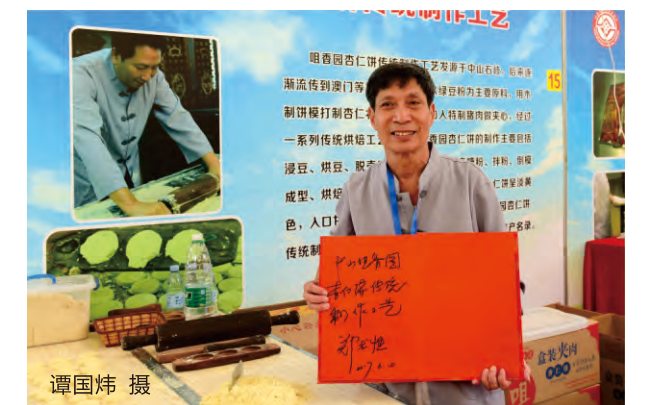 传统制作工艺
咀香园杏仁饼传统制作工艺发源于中山石岐，后来逐
渐流传到澳门等 绿豆粉为主要原料，用木
制饼模打制杏仁 人特制猪肉做夹心，经过
一系列传统烘焙工 香园杏仁饼的制作主要包括
浸豆、烘豆、脱壳 粉、拌粉、倒模
成型、烘焙 仁饼呈淡黄
色，入口 园杏仁饼
传统制 产名录。
15
中山咀香园
杏仁饼传统
制作工艺
郑
盒装夹肉
咀
谭国炜 摄